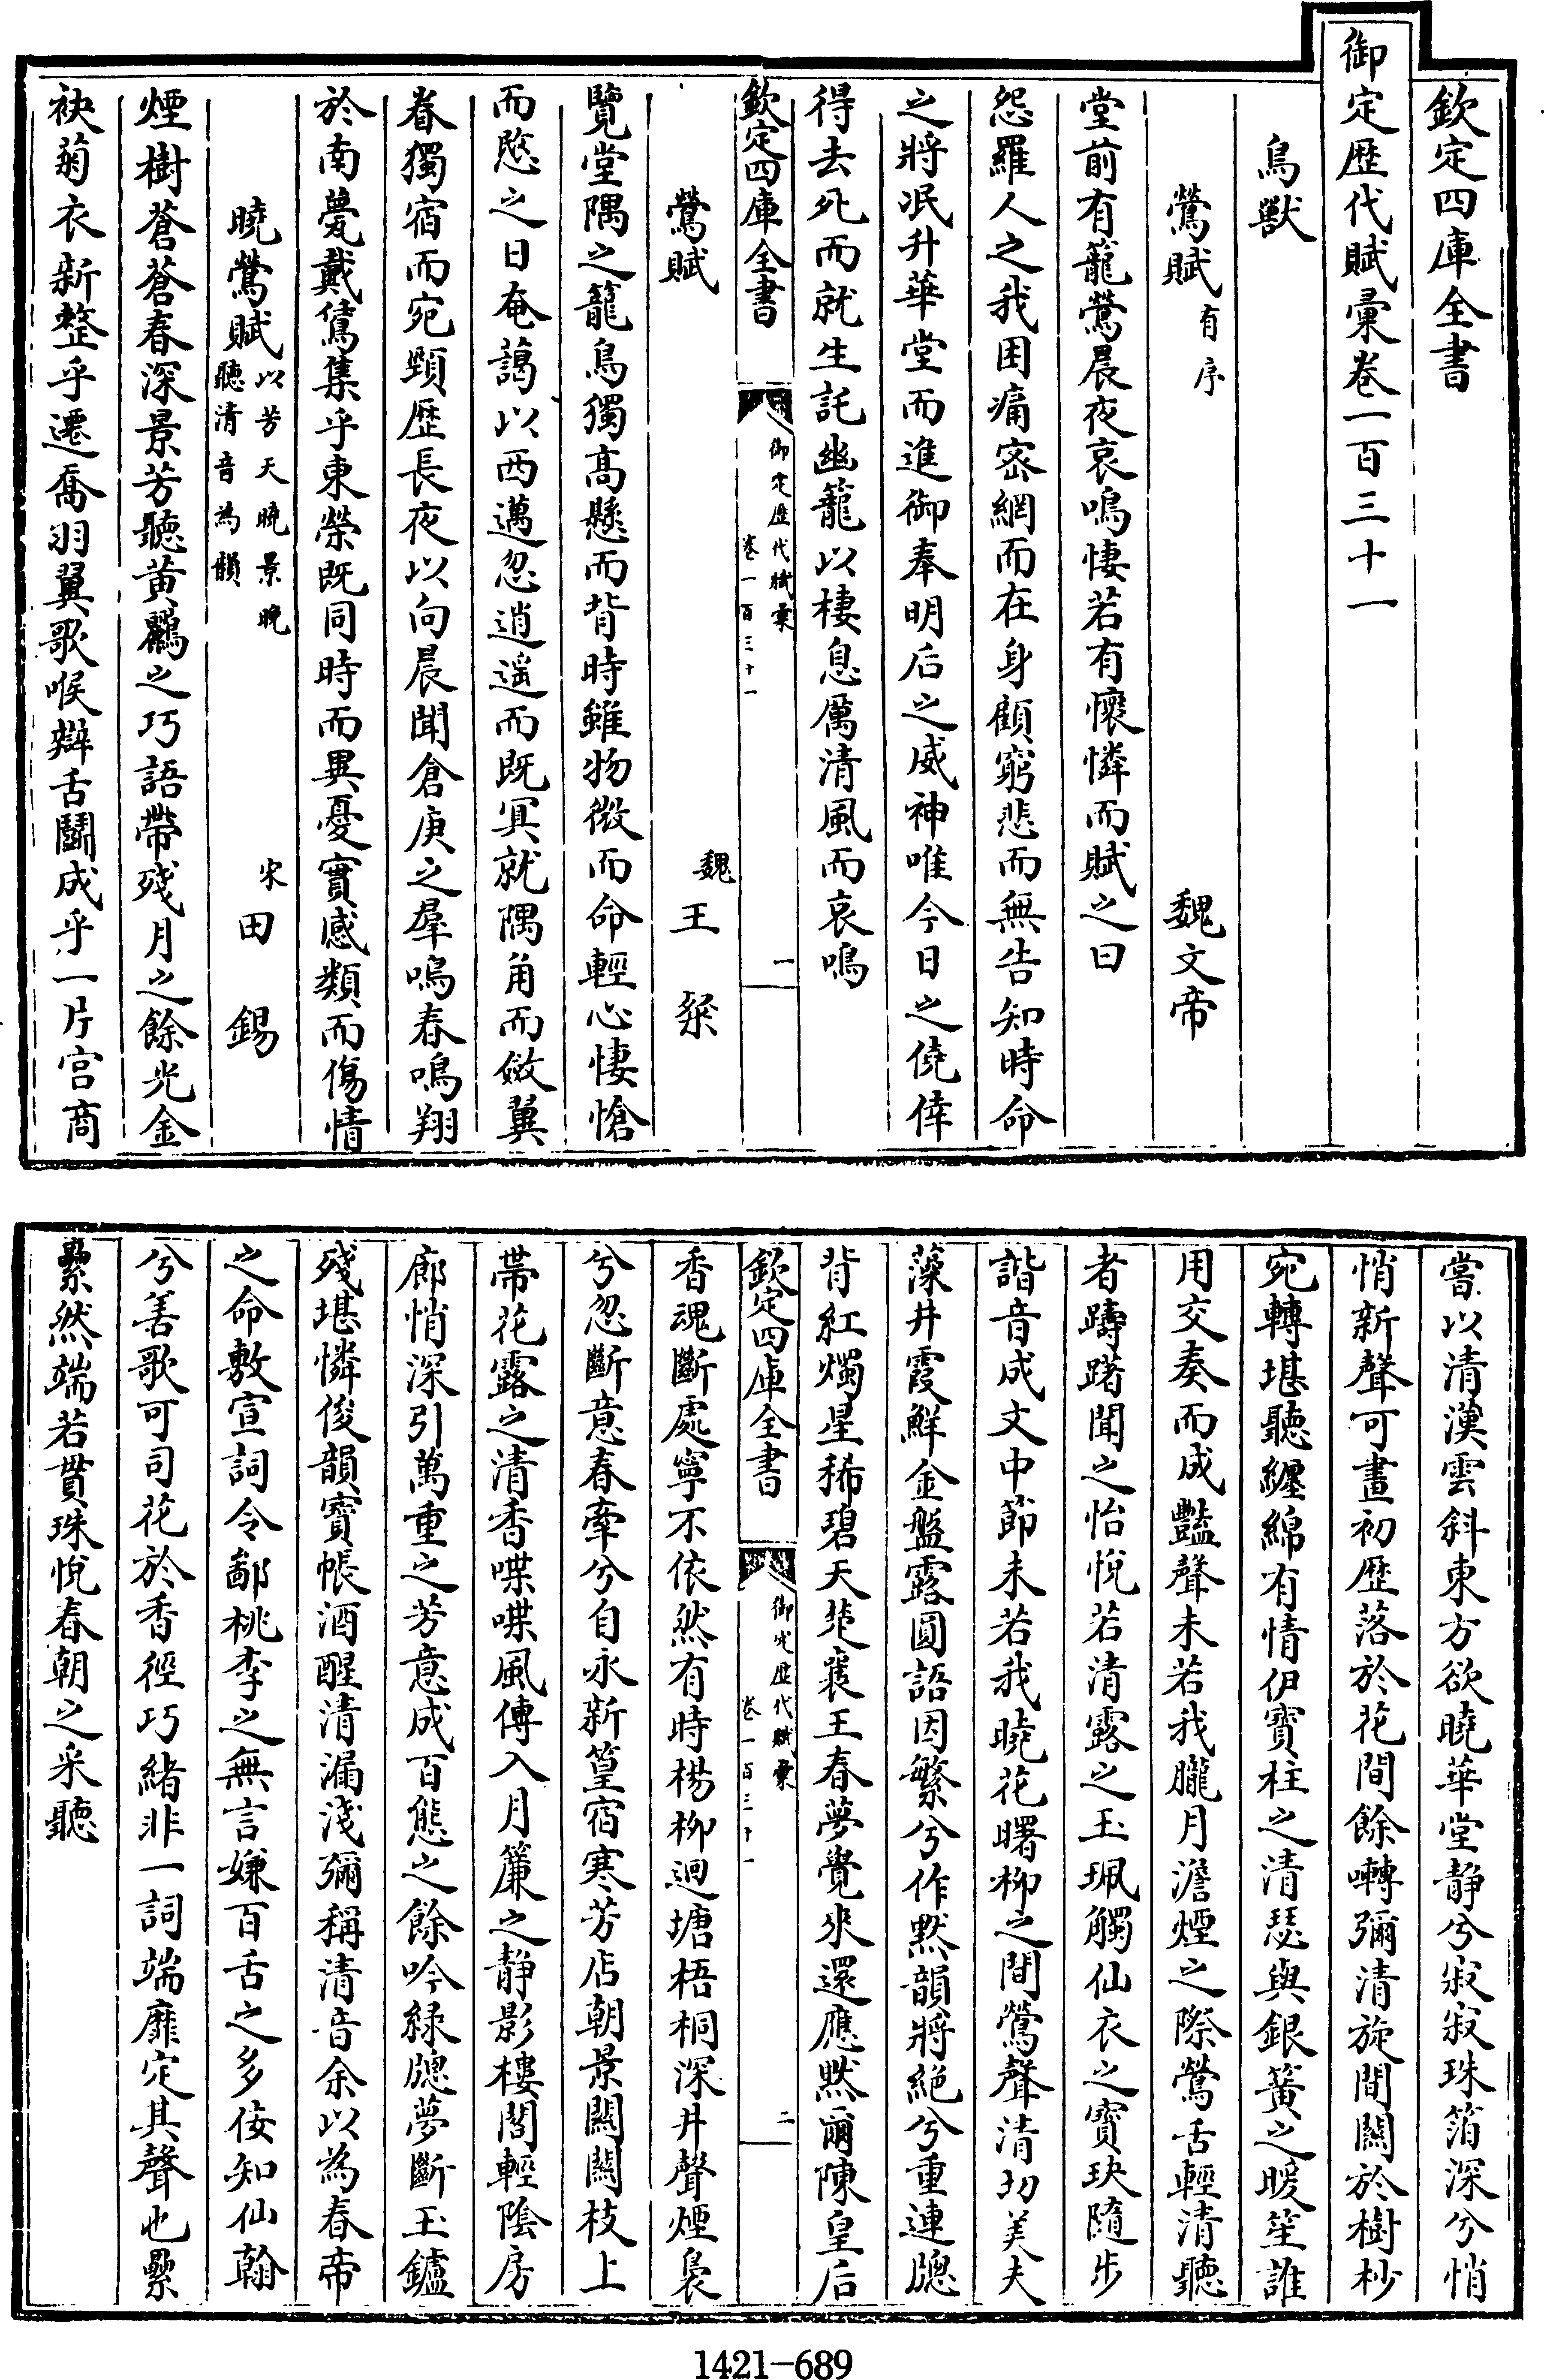 欽定四庫全書
御定歷代賦彙卷一百三十一
鳥獸
鶯賦有序
魏文帝
堂前有籠鶯晨夜哀鳴悽若有懷憐而賦之曰
怨羅人之我困痛密網而在身顧窮悲而無告知時命
之將泯升華堂而進御奉明后之威神唯今日之僥倖
得去死而就生託幽籠以棲息厲清風而哀鳴
欽定四庫全書
御定歷代賦彙
卷一百三十一
一
鶯賦
魏王粲
覽堂隅之籠鳥獨高懸而背時雖物微而命輕心悽愴
而愍之日奄藹以西邁忽逍遥而既冥就隅角而斂翼
眷獨宿而宛頸歷長夜以向晨聞倉庚之羣鳴春鳴翔
於南甍戴鵀集乎東榮既同時而異憂實感類而傷情
曉鶯賦以芳天曉景晚聽清音為韻
宋田錫
煙樹蒼蒼春深景芳聽黄鸝之巧語帶殘月之餘光金
袂菊衣新整乎遷喬羽翼歌喉辯舌鬭成乎一片宫商
當以清漢雲斜東方欲曉華堂静兮寂寂珠箔深兮悄
悄新聲可畫初歷落於花間餘囀彌清旋間關於樹杪
宛轉堪聽纏綿有情伊寶柱之清瑟與銀簧之暖笙誰
用交奏而成豔聲未若我朧月澹煙之際鶯舌輕清聽
者躊躇聞之怡悅若清露之玉珮觸仙衣之寶玦隨步
諧音成文中節未若我曉花曙柳之間鶯聲清切美夫
藻井霞鮮金盤露圓語因繁兮作默韻將絶兮重連牕
背紅燭星稀碧天楚襄王春夢覺來還應默爾陳皇后
欽定四庫全書
御定歷代賦彙
卷一百三十一
二
香魂斷處寧不依然有時楊柳迴塘梧桐深井聲煙裊
兮忽斷意春牽兮自永新篁宿寒芳店朝景關關枝上
帶花露之清香喋喋風傳入月簾之靜影樓閣輕陰房
廊悄深引萬重之芳意成百態之餘吟綠牕夢斷玉鑪
殘堪憐俊韻寶帳酒醒清漏淺彌稱清音余以為春帝
之命敷宣詞令鄙桃李之無言嫌百舌之多佞知仙翰
兮善歌可司花於香徑巧緒非一詞端靡定其聲也纍
纍然端若貫珠悅春朝之采聽
1421-689